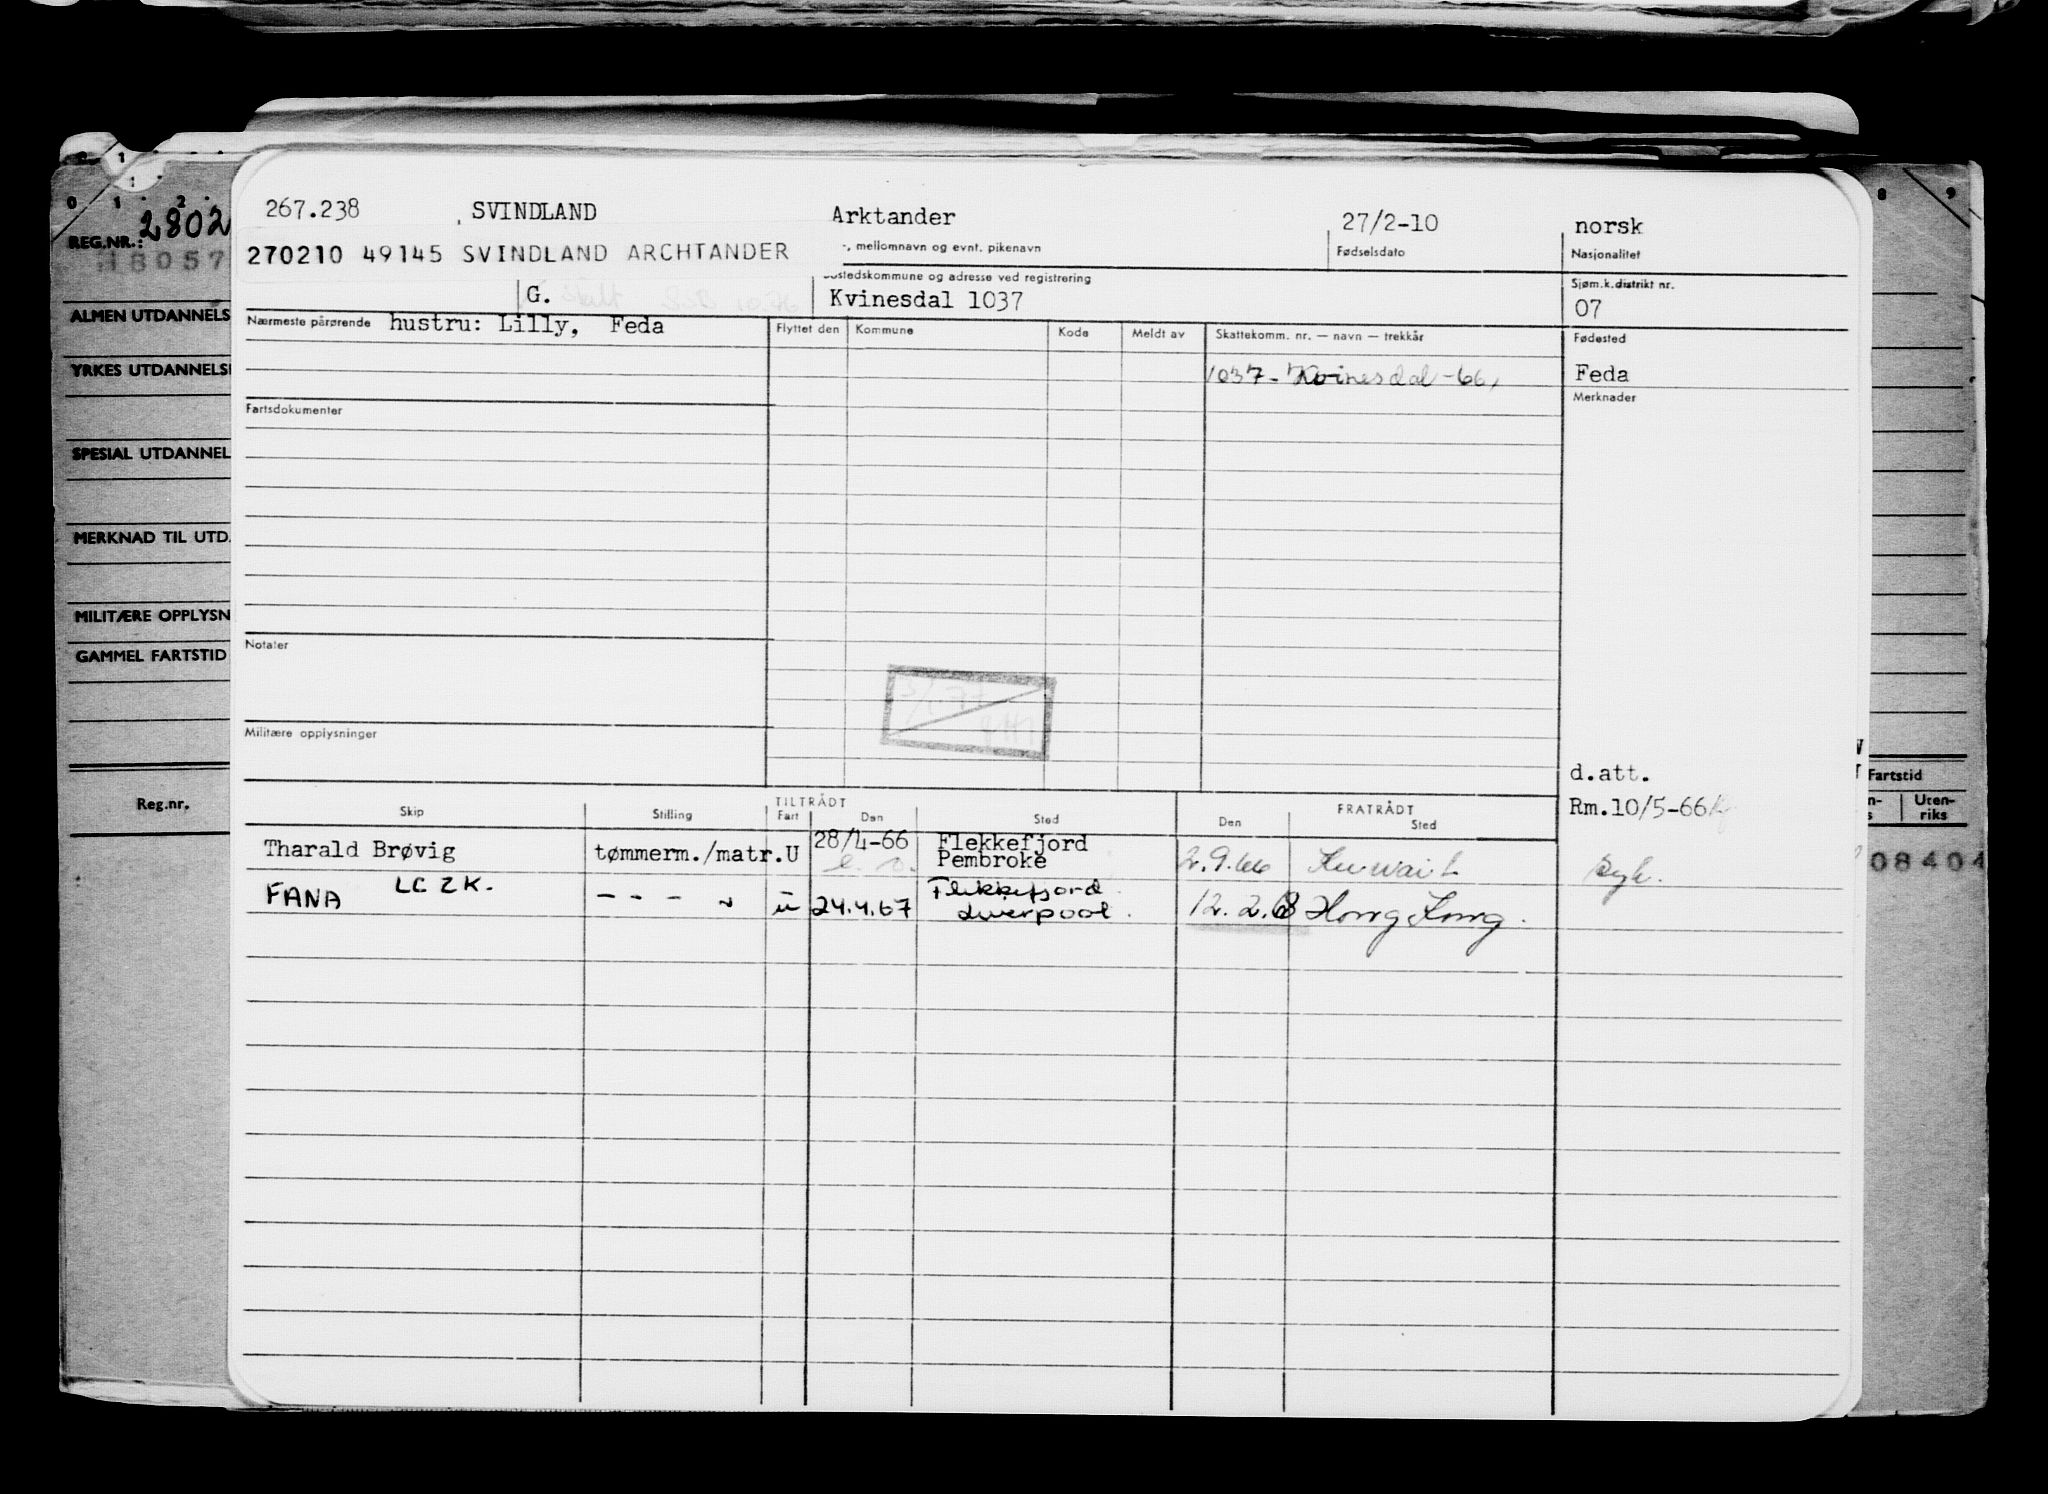 267.238 SVINDLAND Arktander 27/2-10 norsk
270210 49145 SVINDLAND ARCHTANDER
mellomnavn og evnt. pikenavn Fødselsdato Nasjonalitet
G.
bostedskommune og adresse ved registrering Sjøm.k.distrikt nr.
Kvinesdal 1037 07
Nærmeste pårørende hustru: Lilly, Feda
Flyttet den Kommune Kode Meldt av Skattekomm. nr. — navn — trekkår Fødested
1037 - Kvinesdal - 66, Feda
Fartsdokumenter Merknader
Notater
Militære opplysninger
d.att.
Rm.10/5-66
TILTRÅDT FRATRÅDT
Skip Stilling Fart Den Sted Den Sted
Tharald Brøvig tømmerm./matr. U 28/4-66 Flekkefjord
Pembroke 2.9.66 Kuwait syk.
FANA LCZK. — - — " u 24.4.67 Flekkefjord
Liverpool. 12.2.68 Hong Kong.
0 1 2
2802
REG.NR.:
ALMEN UTDANNELS
YRKES UTDANNELS
SPESIAL UTDANNEL
MERKNAD TIL UTD.
MILITÆRE OPPLYSN
GAMMEL FARTSTID
Reg.nr.
8 9
Fartstid
Uten-
riks
08404